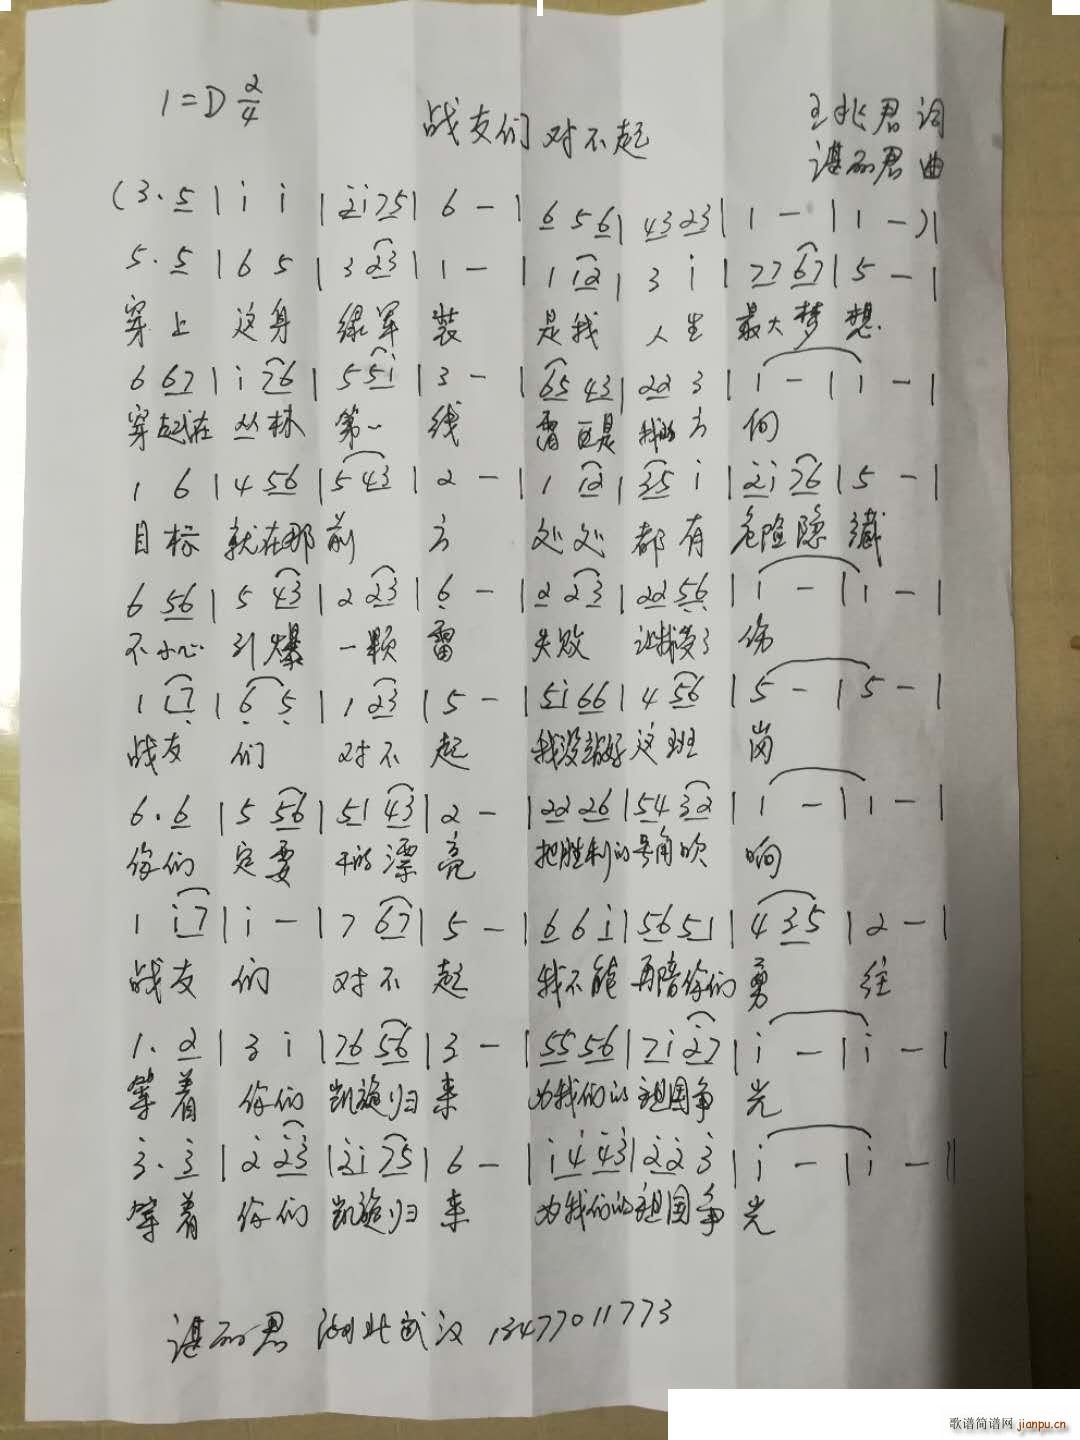 1=D 2/4
战友们对不起
王兆君 词
谌丽君 曲
(3. 5 | i i | 2i75 | 6 - | 6 5 6 | 43 23 | 1 - | 1 - ) |
5. 5 | 6 5 | 3 23 | 1 - | 1 12 | 3 i | 77 67 | 5 - |
穿上 这身 绿军 装 是我 人生 最大梦 想
6 67 | i 76 | 5 5i | 3 - | 65 43 | 22 3 | i - | i - |
穿越在 丛林 第一 线 雷区是 我的方 向
1 6 | 4 56 | 5 43 | 2 - | 1 12 | 35 i | 2i 76 | 5 - |
目标 就在那 前 方 处处 都有 危险隐 藏
6 56 | 5 43 | 2 23 | 6 - | 2 2 3 | 22 56 | i - | i - |
不小心 引爆 一颗 雷 失败 让我受了 伤
1 17 | 6 5 | 1 23 | 5 - | 5i 66 | 4 56 | 5 - | 5 - |
战友 们 对不 起 我没站好 这班 岗
6. 6 | 5 56 | 51 43 | 2 - | 22 26 | 54 32 | 1 - | 1 - |
你们 定要 干的漂 亮 把胜利的 号角吹 响
1 i7 | i - | 7 67 | 5 - | 6 6 i | 56 51 | 4 35 | 2 - |
战友 们 对不 起 我不能 再陪你们 勇 往
1. 2 | 3 i | 76 56 | 3 - | 55 56 | 7i 27 | i - | i - |
等着 你们 凯旋归 来 为我们的 祖国争 光
3. 3 | 2 23 | 2i 75 | 6 - | i4 43 | 22 3 | i - | i - ||
等着 你们 凯旋归 来 为我们的 祖国争 光
谌丽君 湖北武汉 13477011773
歌谱简谱网 jianpu.cn